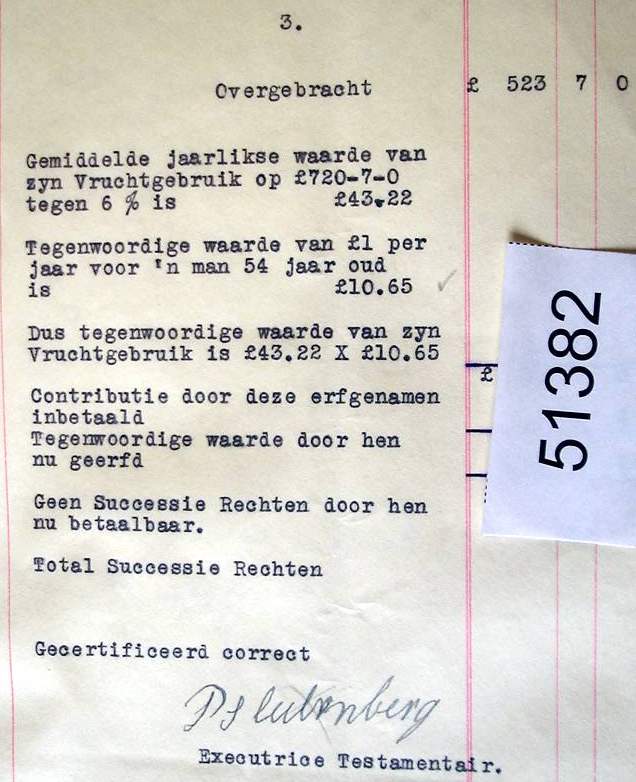 3.
Overgebracht £ 523 7 0
Gemiddelde jaarlikse waarde van
zyn Vruchtgebruik op £720-7-0
tegen 6 % is £43.22
Tegenwoordige waarde van £1 per
jaar voor 'n man 54 jaar oud
is £10.65
Dus tegenwoordige waarde van zyn
Vruchtgebruik is £43.22 X £10.65
£
Contributie door deze erfgenamen
inbetaald
Tegenwoordige waarde door hen
nu geerfd
Geen Successie Rechten door hen
nu betaalbaar.
Total Successie Rechten
Gecertificeerd correct
Executrice Testamentair.
51382